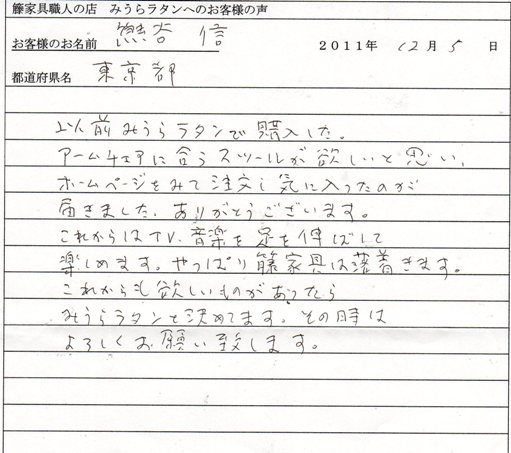 籐家具職人の店　みうらラタンへのお客様の声
お客様のお名前　熊谷　信　2011年 12月 5 日
都道府県名　東京都
以前みうらラタンで購入した。
アームチェアに合うスツールが欲しいと思い、
ホームページをみて注文し気に入ったのが
届きました。ありがとうございます。
これからはTV、音楽を足を伸ばして
楽しめます。やっぱり籐家具は落着きます。
これからも欲しいものがあったら
みうらラタンと決めてます。その時は
よろしくお願い致します。